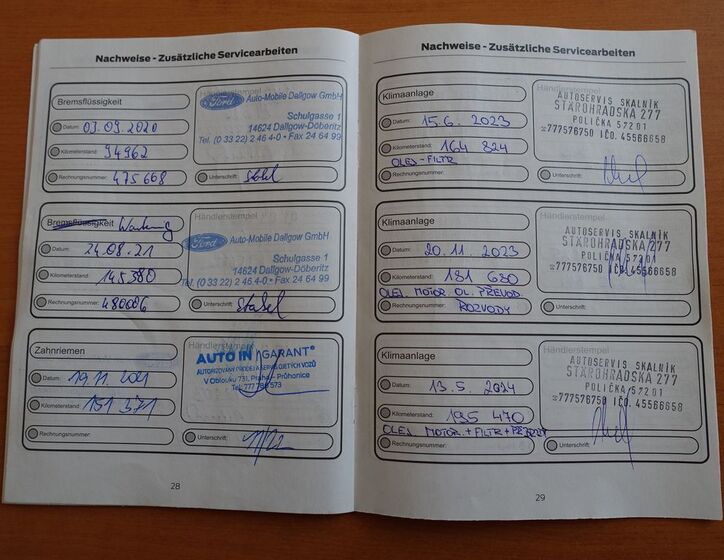 Nachweise - Zusätzliche Servicearbeiten
Bremsflüssigkeit
Datum: 03.09.2020
Kilometerstand: 94962
Rechnungsnummer: 475668
Händlerstempel
Ford Auto-Mobile Dallgow GmbH
Schulgasse 1
14624 Dallgow-Döberitz
Tel. (0 33 22) 2 46 4-0 • Fax 24 64 99
Unterschrift:
Bremsflüssigkeit Wartung
Datum: 24.08.21
Kilometerstand: 145380
Rechnungsnummer: 480606
Händlerstempel
Ford Auto-Mobile Dallgow GmbH
Schulgasse 1
14624 Dallgow-Döberitz
Tel. (0 33 22) 2 46 4-0 • Fax 24 64 99
Unterschrift:
Zahnriemen
Datum: 19.11.2021
Kilometerstand: 151 371
Rechnungsnummer:
Händlerstempel
AUTO IN GARANT®
V Oblouku 731, Praha – Průhonice
Unterschrift:
28
Nachweise - Zusätzliche Servicearbeiten
Klimaanlage
Datum: 15.6. 2023
Kilometerstand: 164 824
OLEJ - FILTR
Rechnungsnummer:
Händlerstempel
AUTOSERVIS SKALNÍK
STAROHRADSKÁ 277
POLIČKA 57201
☎777576750 IČO. 45566658
Unterschrift:
Klimaanlage
Datum: 20.11.2023
Kilometerstand: 181 630
OLEJ MOTOR OL. PŘEVOD.
Rechnungsnummer: ROZVODY
Händlerstempel
AUTOSERVIS SKALNÍK
STAROHRADSKÁ 277
POLIČKA 57201
☎777576750 IČO. 45566658
Unterschrift:
Klimaanlage
Datum: 13.5 2024
Kilometerstand: 195 470
OLEJ MOTOR + FILTR +
Rechnungsnummer:
Händlerstempel
AUTOSERVIS SKALNÍK
STAROHRADSKÁ 277
POLIČKA 57201
☎777576750 IČO. 45566658
Unterschrift:
29